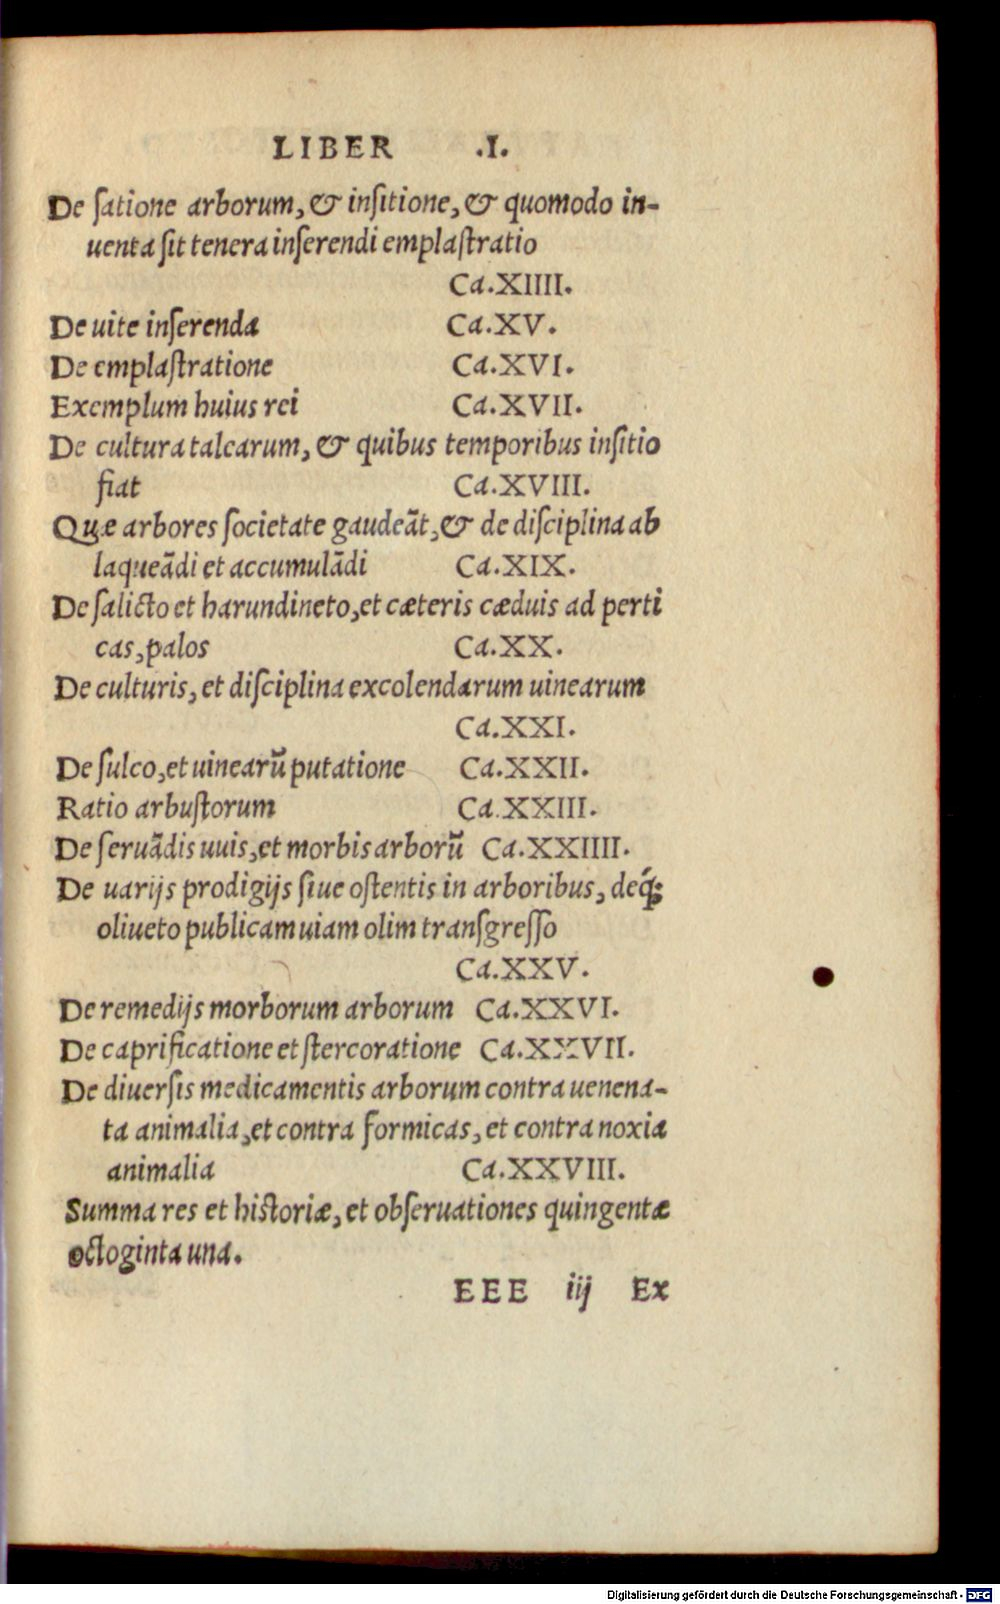 LIBER .I.
De ſatione arborum, & inſitione, & quomodo in-
uenta ſit tenera inſerendi emplaſtratio
Ca.XIIII.
De uite inſerenda Ca.XV.
De emplaſtratione Ca.XVI.
Exemplum huius rei Ca.XVII.
De cultura talearum, & quibus temporibus inſitio
fiat Ca.XVIII.
Quæ arbores ſocietate gaudeãt, & de diſciplina ab
laqueãdi et accumulãdi Ca.XIX.
De ſalicto et harundineto, et cæteris cæduis ad perti
cas, palos Ca.XX.
De culturis, et diſciplina excolendarum uinearum
Ca.XXI.
De ſulco, et uinearũ putatione Ca.XXII.
Ratio arbuſtorum Ca.XXIII.
De ſeruãdis uuis, et morbis arborũ Ca.XXIIII.
De uarijs prodigijs ſiue oſtentis in arboribus, deq́;
oliueto publicam uiam olim tranſgreſſo
Ca.XXV.
De remedijs morborum arborum Ca.XXVI.
De caprificatione et ſtercoratione Ca.XXVII.
De diuerſis medicamentis arborum contra uenena-
ta animalia, et contra formicas, et contra noxia
animalia Ca.XXVIII.
Summa res et hiſtoriæ, et obſeruationes quingentæ
octoginta una.
EEE iij Ex
Digitalisierung gefördert durch die Deutsche Forschungsgemeinschaft - DFG